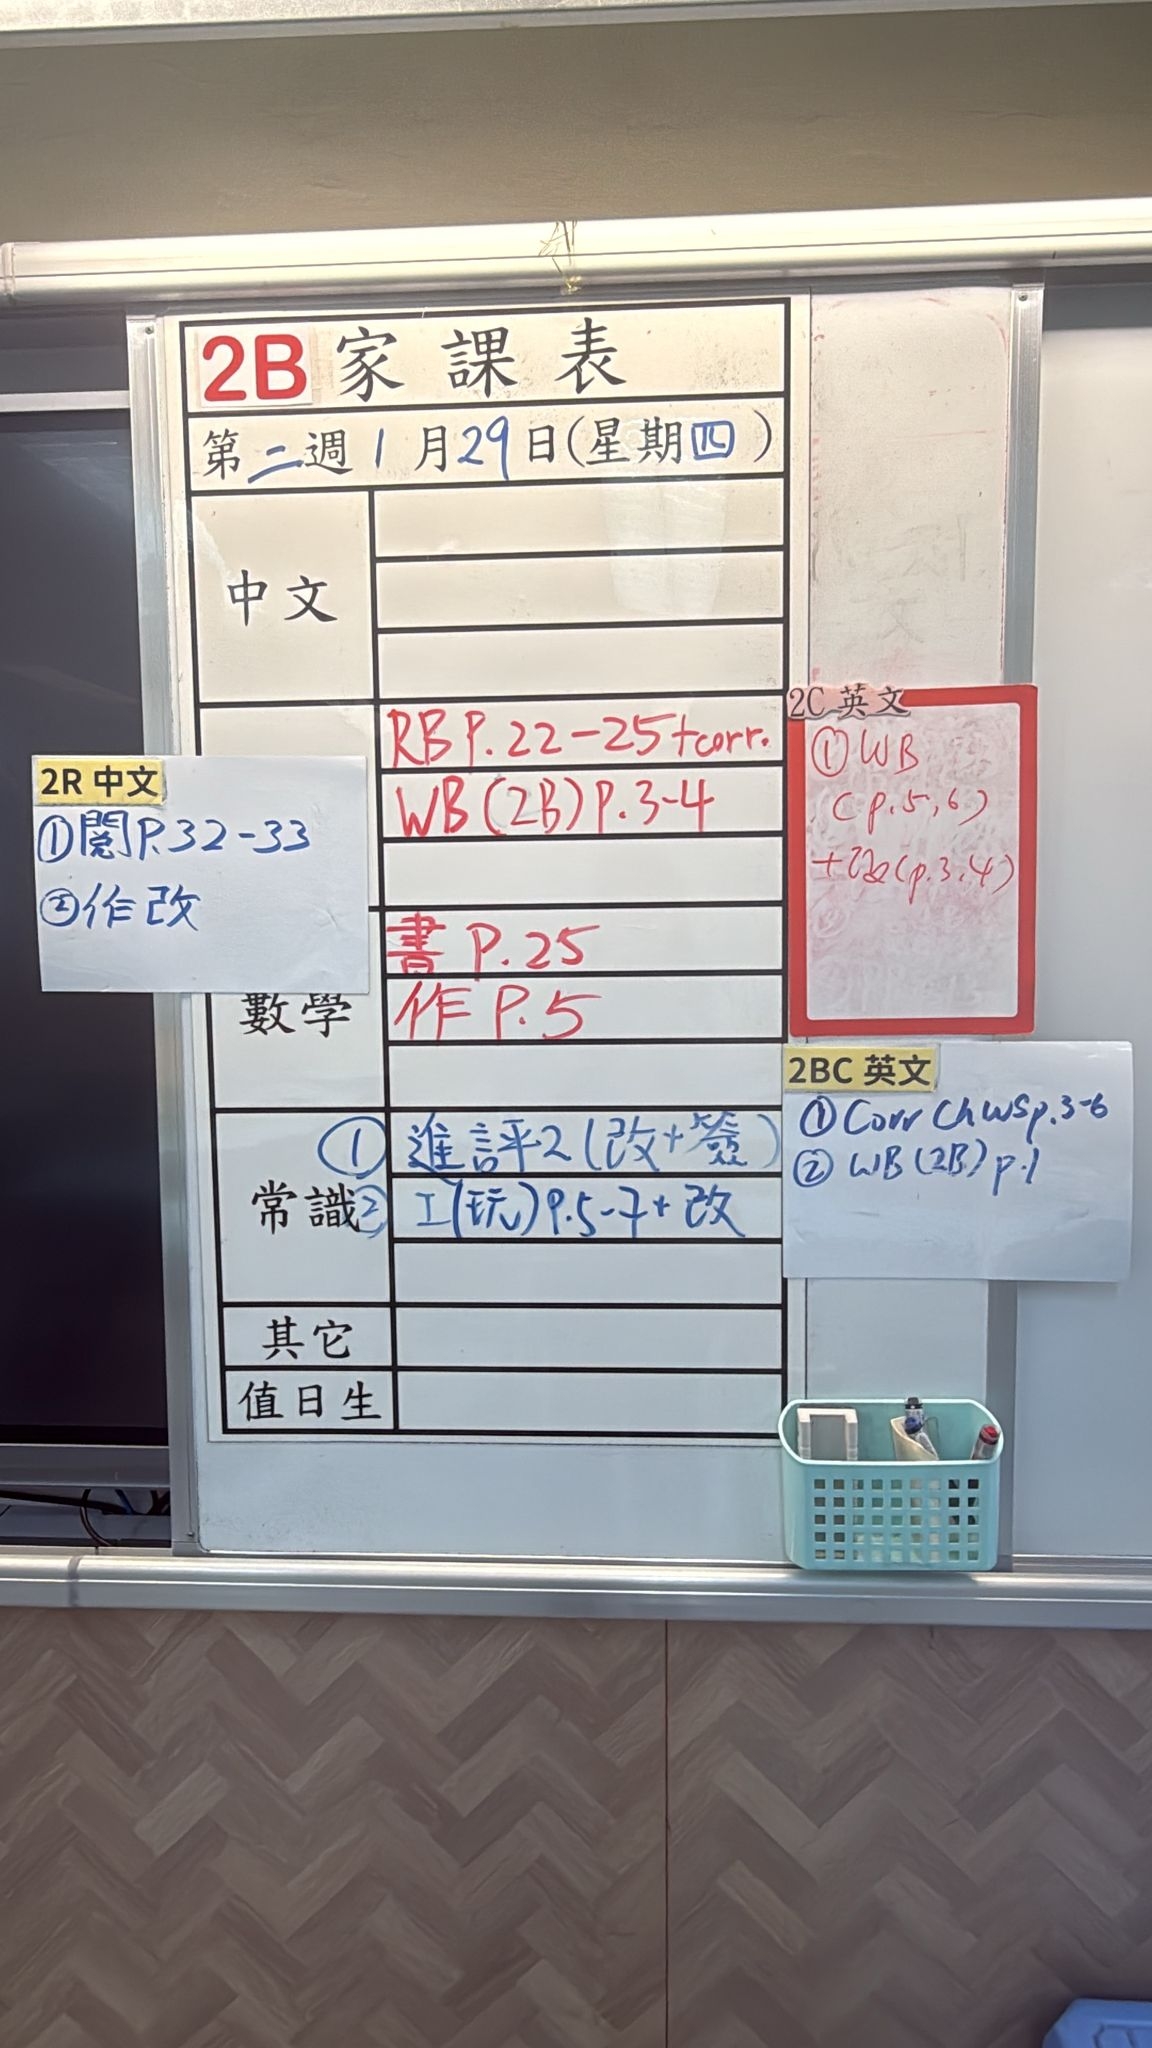 2B 家課表
第二週1月29日(星期四)
中文
RB P.22-25+corr.
WB(2B)P.3-4
書 P.25
數學
作 P.5
① 進評2(改+簽)
常識② 工(玩)P.5-7+改
其它
值日生
2R 中文
①閱P.32-33
②作改
2C 英文
①WB
(p.5,6)
+改(p.3,4)
2BC 英文
① Corr Ch WS p.3-6
② WB(2B) p.1